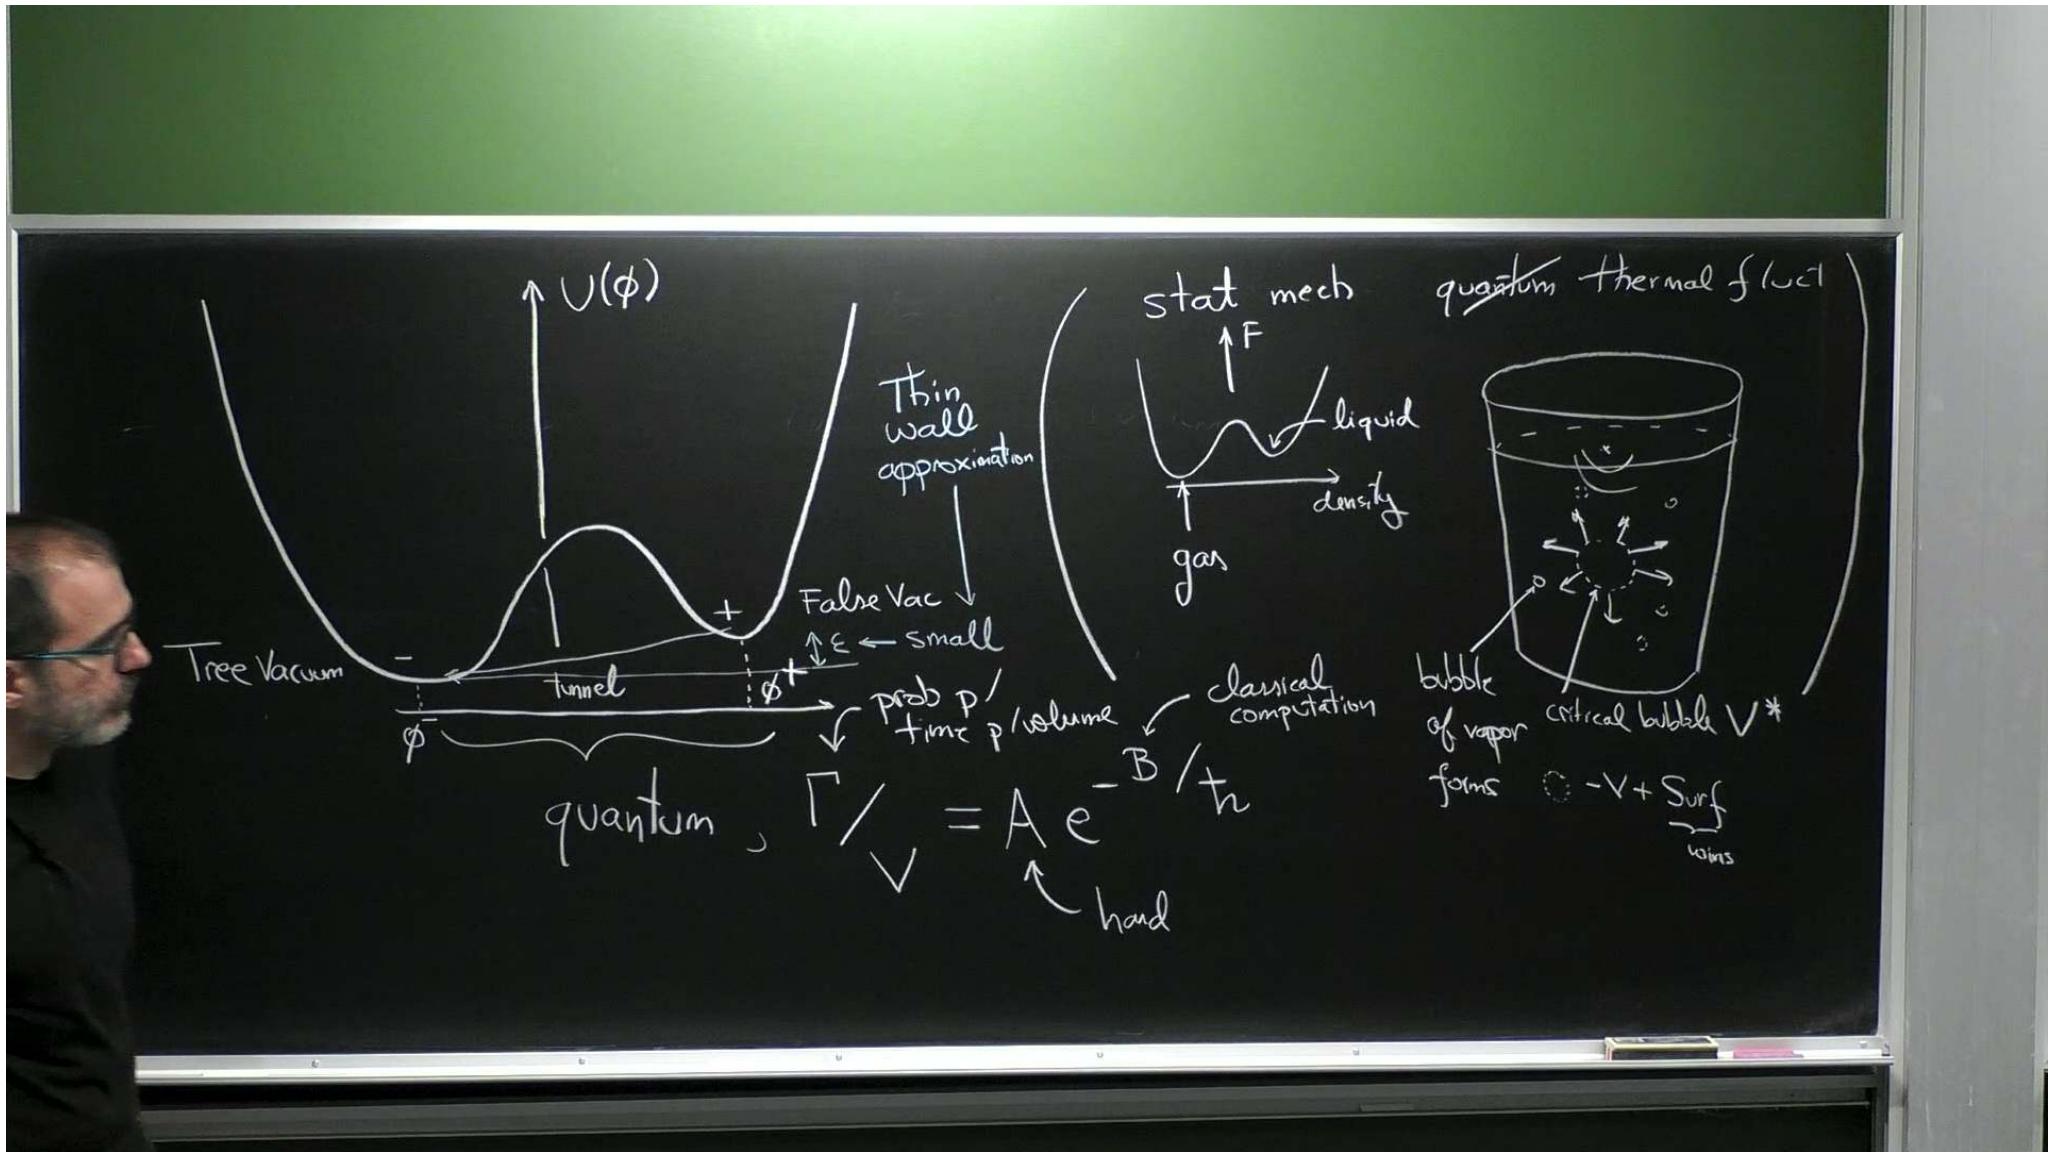 U(φ)
Thin
wall
approximation
+
False Vac
ε ← small
True Vacuum
-
tunnel
φ+
φ-
prob p/
time p/volume
classical
computation
quantum, Γ/V = A e^{-B/ħ}
hard
stat mech
quantum thermal fluct
F
liquid
density
gas
bubble
of vapor
forms
critical bubble V*
-V + Surf
wins